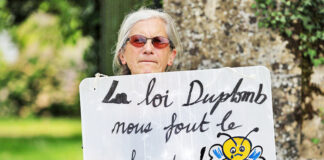 La loi Duplomb
nous fout le